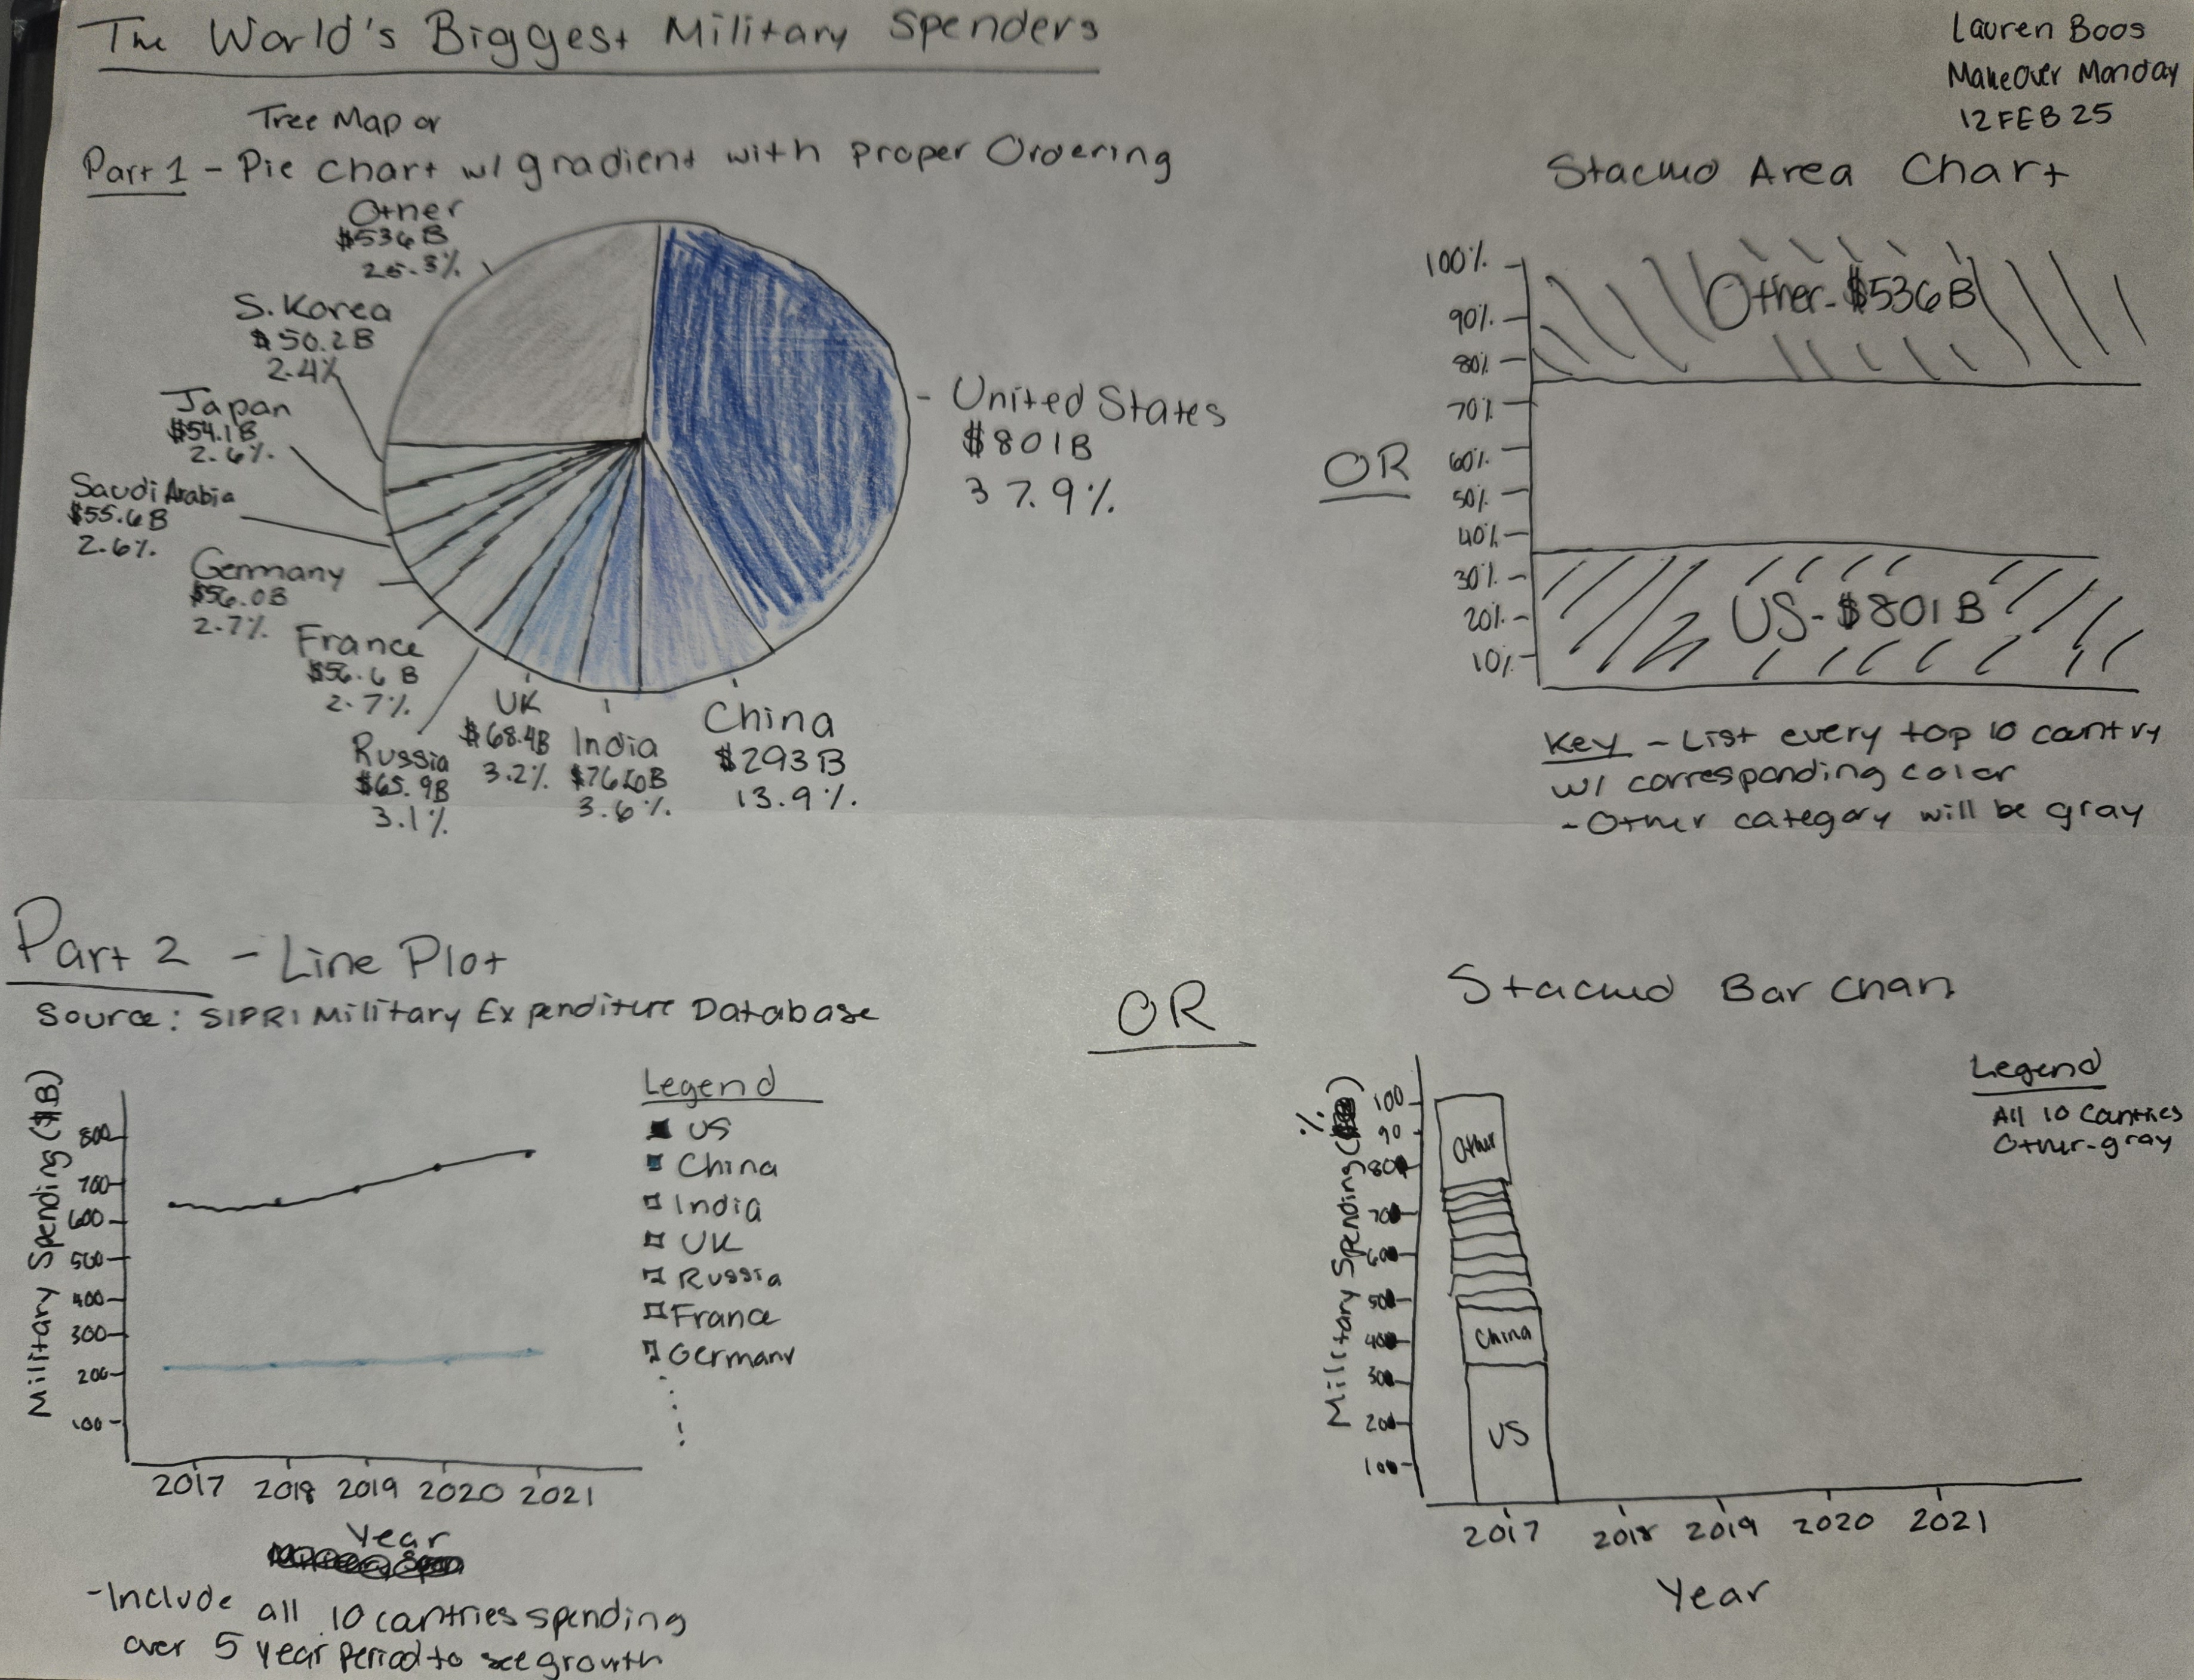 The World's Biggest Military Spenders
Lauren Boos
MakeOver Monday
12 FEB 25
Tree Map or
Part 1 - Pie Chart w/ gradient with proper Ordering
Other
$536B
25.3%
S. Korea
$50.2B
2.4%
Japan
$54.1B
2.6%
Saudi Arabia
$55.6B
2.6%
Germany
$56.0B
2.7%
France
$56.6B
2.7%
Russia
$65.9B
3.1%
UK
$68.4B
3.2%
India
3.6%
China
$293B
13.9%
- United States
$801B
37.9%
OR
Stacked Area Chart
100%
90%
80%
70%
60%
50%
40%
30%
20%
10%
Other - $536B
US - $801B
Key - List every top 10 country
w/ corresponding color
- Other category will be gray
Part 2 - Line Plot
Source: SIPRI Military Expenditure Database
Military Spending ($B)
800
700
600
500
400
300
200
100
2017 2018 2019 2020 2021
Year
Legend
US
China
India
UK
Russia
France
Germany
- Include all 10 countries spending
over 5 year period to see growth
OR
Stacked Bar Chart
Military Spending %
100
90
80
70
60
50
40
30
20
10
Other
China
US
2017 2018 2019 2020 2021
Year
Legend
All 10 Countries
Other - gray